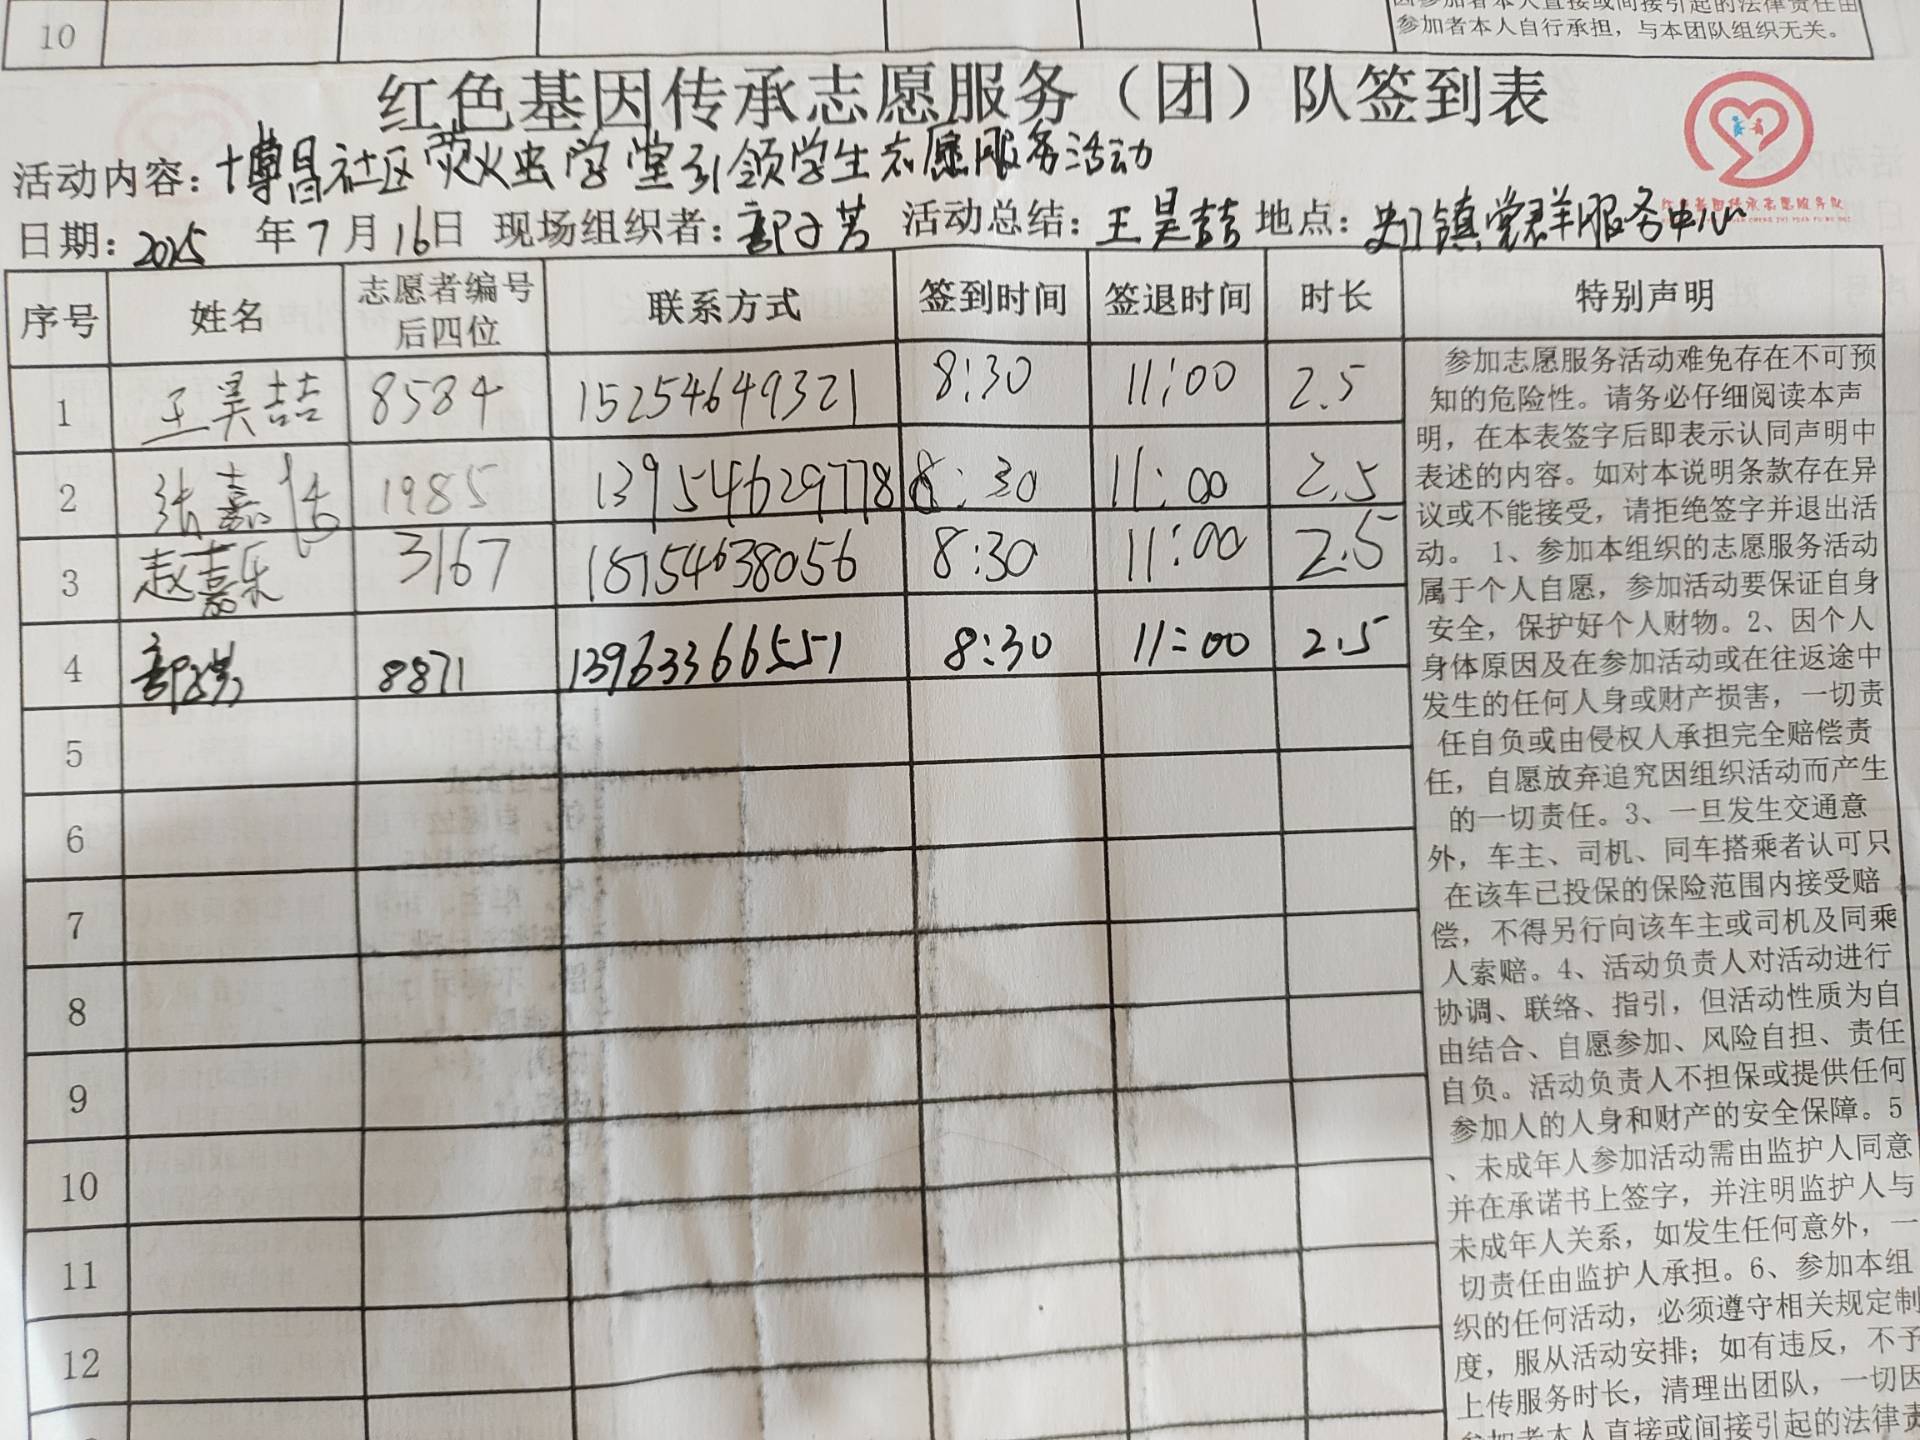 10
参加者本人自行承担，与本团队组织无关。
红色基因传承志愿服务（团）队签到表
活动内容：博昌社区荧火虫学堂引领学生志愿服务活动
日期：2025 年7月16日 现场组织者：郭子芳 活动总结：王昊喆 地点：史口镇党群服务中心
序号 姓名 志愿者编号后四位 联系方式 签到时间 签退时间 时长 特别声明
1 王昊喆 8584 15254649321 8:30 11:00 2.5
2 张嘉 1985 13954629778 8:30 11:00 2.5
3 赵嘉乐 3167 18754638056 8:30 11:00 2.5
4 郭子芳 8871 13963366551 8:30 11:00 2.5
5
6
7
8
9
10
11
12
参加志愿服务活动难免存在不可预
知的危险性。请务必仔细阅读本声
明，在本表签字后即表示认同声明中
表述的内容。如对本说明条款存在异
议或不能接受，请拒绝签字并退出活
动。 1、参加本组织的志愿服务活动
属于个人自愿，参加活动要保证自身
安全，保护好个人财物。2、因个人
身体原因及在参加活动或在往返途中
发生的任何人身或财产损害，一切责
任自负或由侵权人承担完全赔偿责
任，自愿放弃追究因组织活动而产生
的一切责任。3、一旦发生交通意
外，车主、司机、同车搭乘者认可只
在该车已投保的保险范围内接受赔
偿，不得另行向该车主或司机及同乘
人索赔。4、活动负责人对活动进行
协调、联络、指引，但活动性质为自
由结合、自愿参加、风险自担、责任
自负。活动负责人不担保或提供任何
参加人的人身和财产的安全保障。5
、未成年人参加活动需由监护人同意
并在承诺书上签字，并注明监护人与
未成年人关系，如发生任何意外，一
切责任由监护人承担。6、参加本组
织的任何活动，必须遵守相关规定制
度，服从活动安排；如有违反，不予
上传服务时长，清理出团队，一切因
参加者本人直接或间接引起的法律责